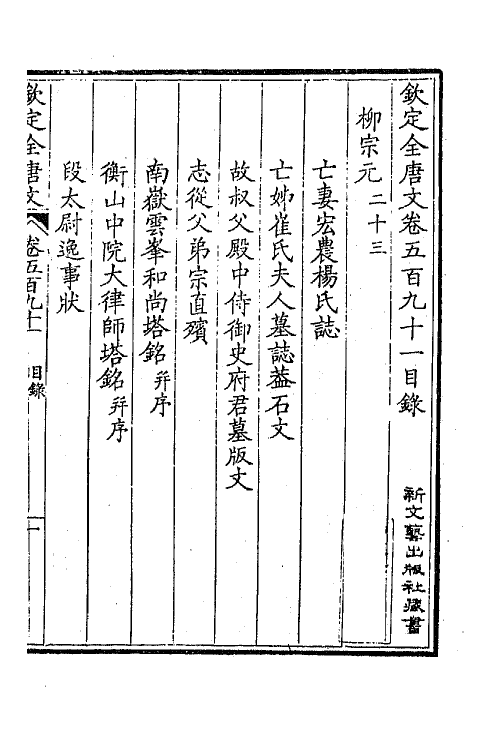 欽定全唐文卷五百九十一目錄
新文藝出版社藏書
柳宗元二十三
亡妻宏農楊氏誌
亡姊崔氏夫人墓誌葢石文
故叔父殿中侍御史府君墓版文
志從父弟宗直殯
南嶽雲峯和尚塔銘并序
衡山中院大律師塔銘并序
段太尉逸事狀
欽定全唐文 卷五百九十一 目錄 一